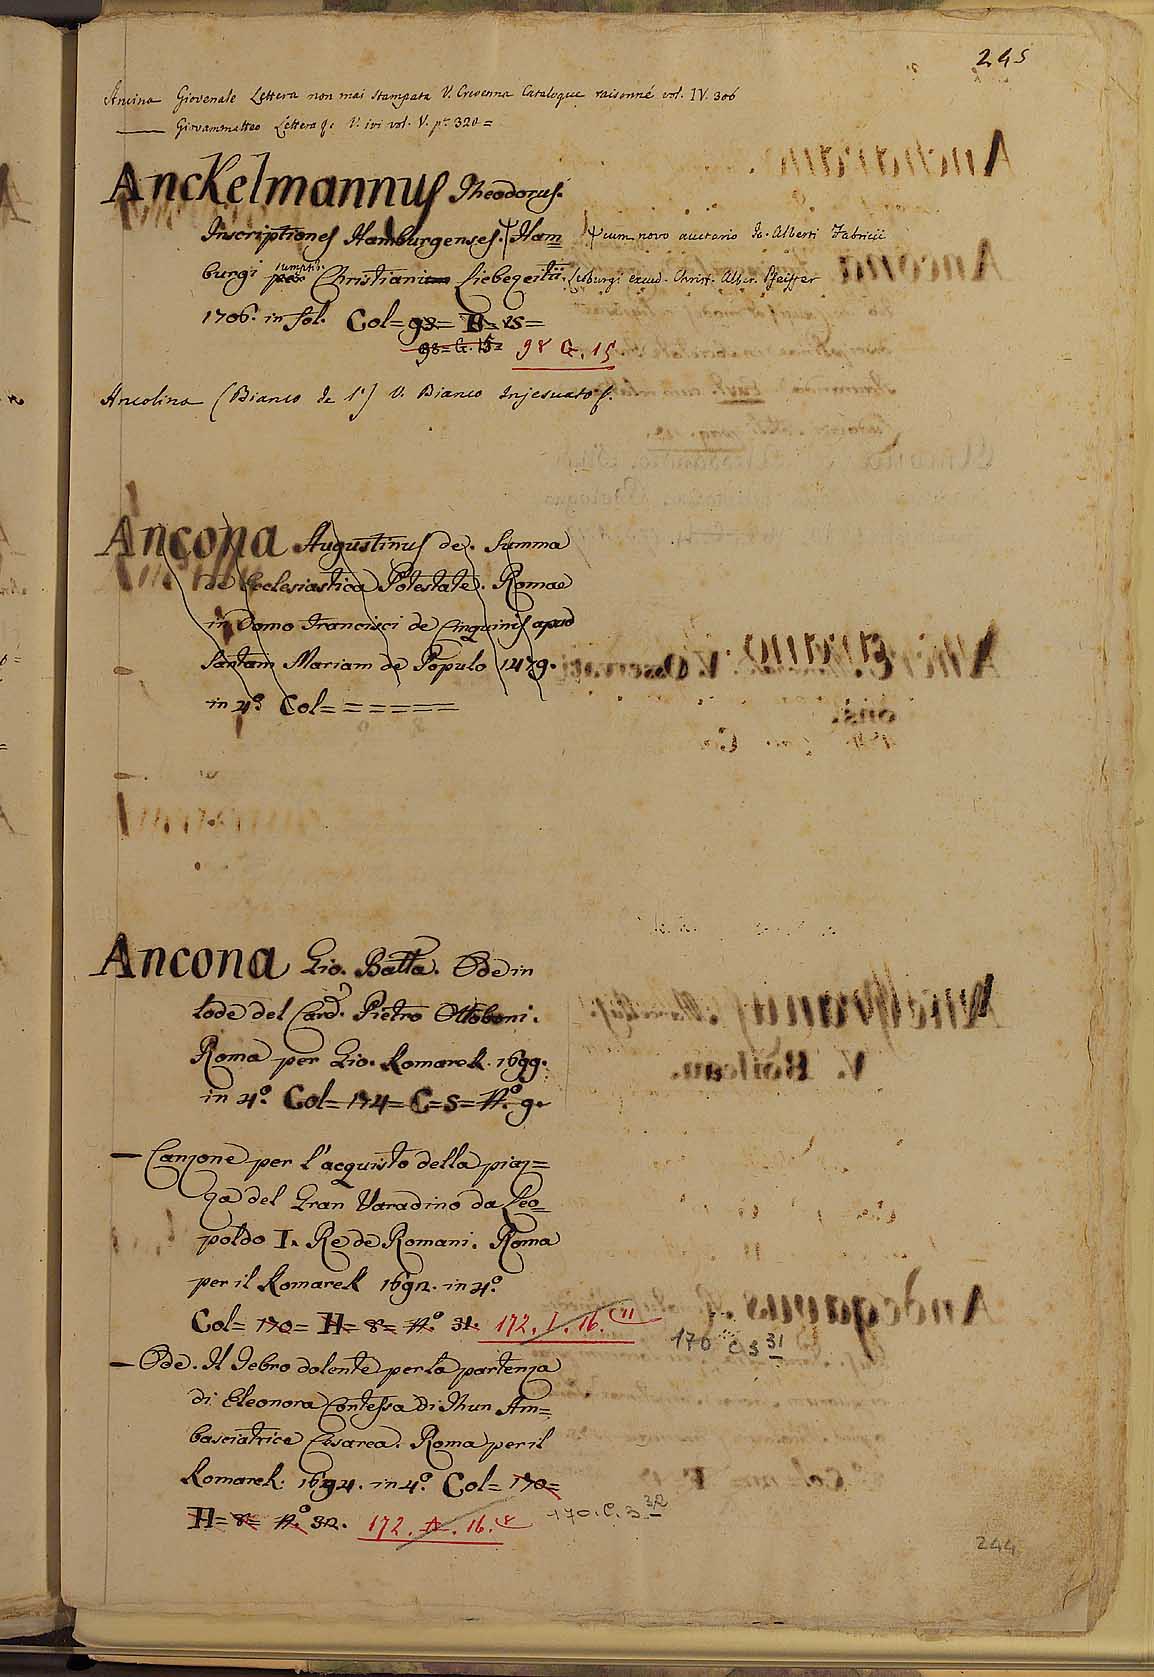 245
Ancina Giovenale Lettera non mai stampata V. Crevenna Catalogue raisonné vol. IV. 306
—— Giovammatteo Lettera V. ivi vol. V. pr. 320 =
Anckelmannus Theodorus.
Inscriptiones Hamburgenses. Ham=
cum novo auctario Jo. Alberti Fabricii
burgi per sumptib. Christiani Liebezeitii.
burgi excud. Christ. Alber. Pfeiffer
1706. in fol. Col= 98= H= 25=
98= G. 15= 98 G. 15
Ancolina (Bianco de l') V. Bianco Injesuato
Ancona Augustinus de. Summa
de Ecclesiastica Potestate. Romae
in Domo Francisci de Cinquinis apud
Santam Mariam de Populo 1479.
in 4.º Col= = = = = =
Ancona Gio. Batta. Ode in
lode del Card. Pietro Ottoboni.
Roma per Gio. Komarek. 1699.
in 4.º Col= 174= C= 5= N.º 9.
— Canzone per l'acquisto della piaz=
za del Gran Varadino da Leo=
poldo I. Re de Romani. Roma
per il Komarek 1692. in 4.º
Col= 170= H= 8= N.º 31. 172. I. 16. 11
170 C 3 31
— Ode. Il Tebro dolente per la partenza
di Eleonora Contessa di Thun Am=
basciatrice Cesarea. Roma per il
Komarek. 1694. in 4.º Col= 170=
H= 8= N.º 32. 172. A. 16. 170. C. 3. 32
244